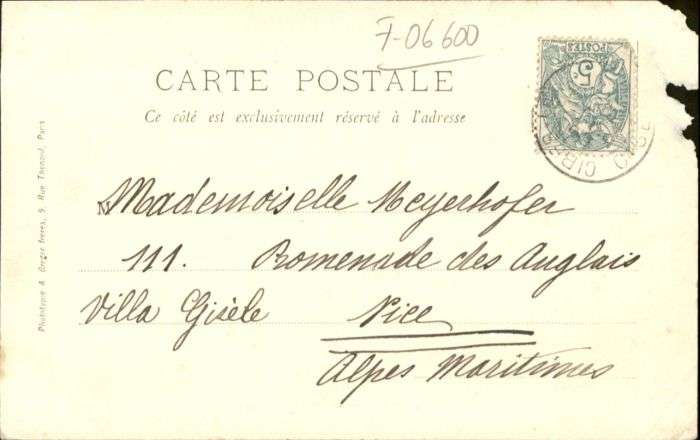 7-06600
CARTE POSTALE
Ce côté est exclusivement réservé à l'adresse
5
POSTES
Mademoiselle Meyerhofer
111. Promenade des Anglais
Villa Gisèle Nice
Alpes Maritimes
Phototypie A. Bergeret Frères, 9 Rue Thénard, Paris